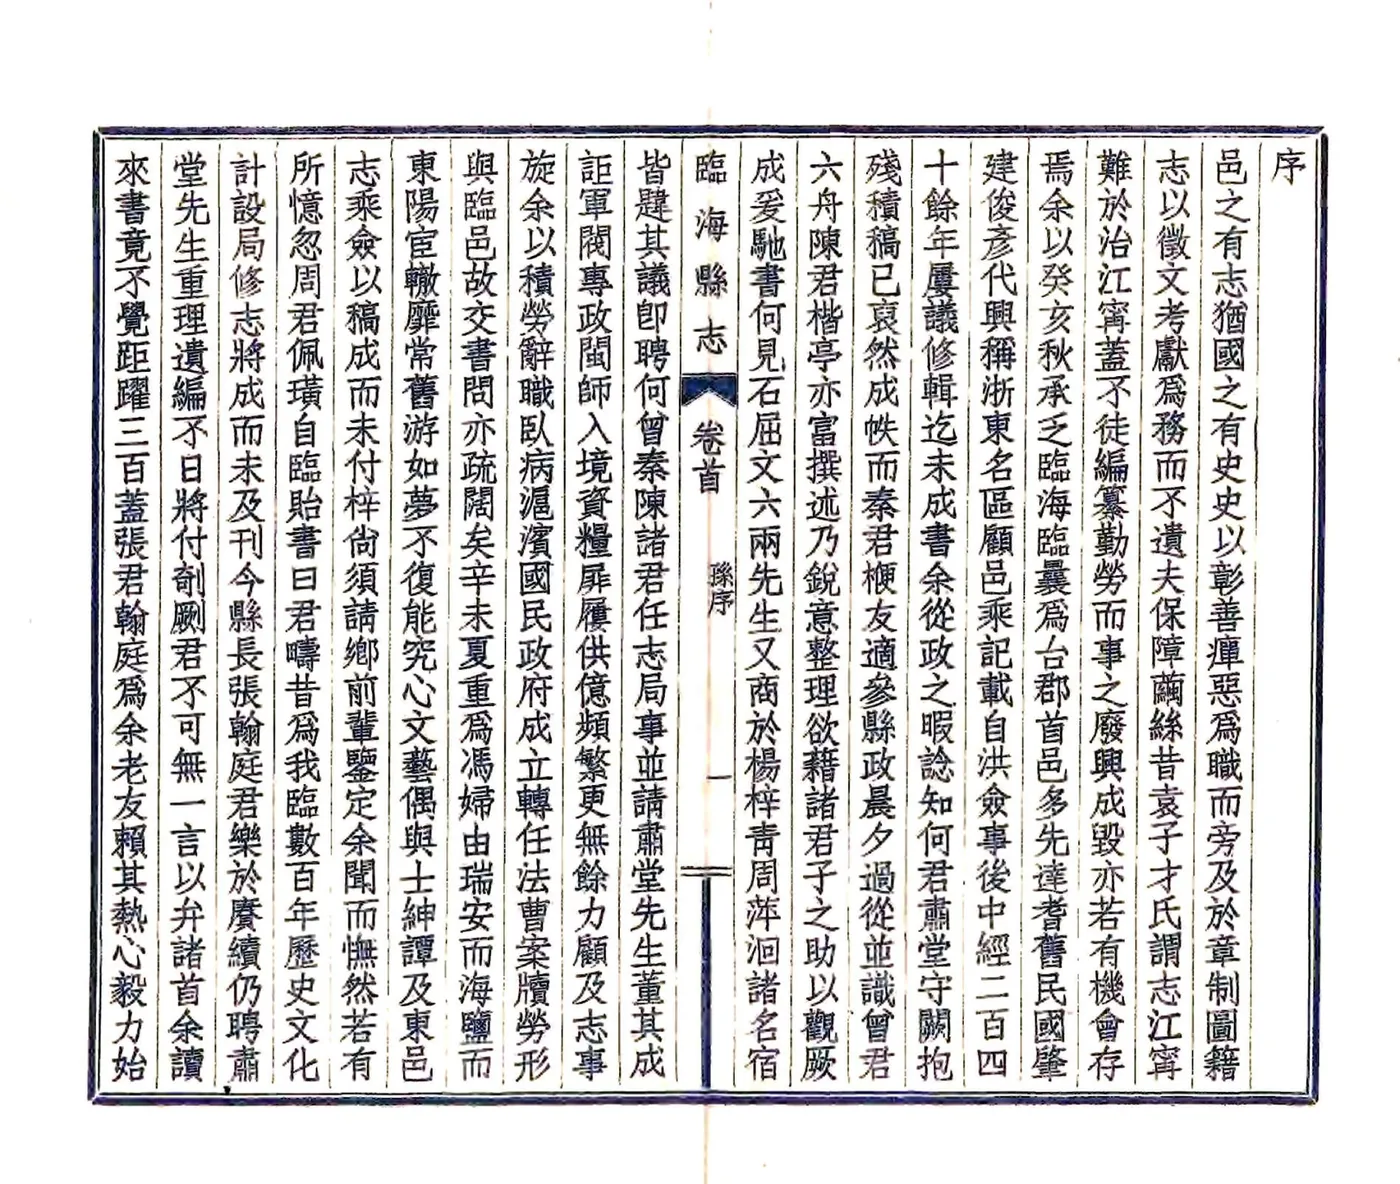 序
邑之有志猶國之有史史以彰善癉惡爲職而旁及於章制圖籍
志以徵文考獻爲務而不遺夫保障繭絲昔袁子才氏謂志江甯
難於治江甯蓋不徒編纂勤勞而事之廢興成毀亦若有機會存
焉余以癸亥秋承乏臨海臨曩爲台郡首邑多先達耆舊民國肇
建俊彥代興稱浙東名區顧邑乘記載自洪僉事後中經二百四
十餘年屢議修輯迄未成書余從政之暇諗知何君肅堂守闕抱
殘積稿已裒然成帙而秦君楩友適參縣政晨夕過從並識曾君
六舟陳君楷亭亦富撰述乃銳意整理欲藉諸君子之助以觀厥
成爰馳書何見石屈文六兩先生又商於楊梓靑周萍洄諸名宿
臨海縣志 卷首 孫序 一
皆韙其議卽聘何曾秦陳諸君任志局事並請肅堂先生董其成
詎軍閥專政閩師入境資糧屝屨供億頻繁更無餘力顧及志事
旋余以積勞辭職臥病滬濱國民政府成立轉任法曹案牘勞形
與臨邑故交書問亦疏闊矣辛未夏重爲馮婦由瑞安而海鹽而
東陽宦轍靡常舊游如夢不復能究心文藝偶與士紳譚及東邑
志乘僉以稿成而未付梓尙須請鄉前輩鑒定余聞而憮然若有
所憶忽周君佩璜自臨貽書曰君疇昔爲我臨數百年歷史文化
計設局修志將成而未及刊今縣長張翰庭君樂於賡續仍聘肅
堂先生重理遺編不日將付剞劂君不可無一言以弁諸首余讀
來書竟不覺距躍三百蓋張君翰庭爲余老友賴其熱心毅力始